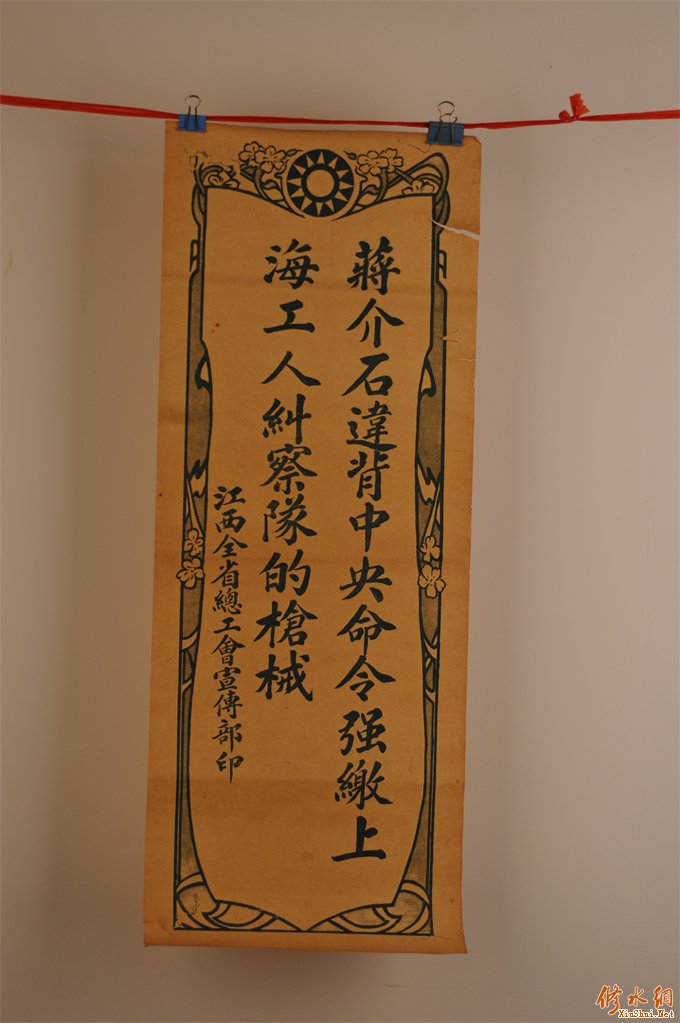 蔣介石違背中央命令强繳上
海工人糾察隊的槍械
江西全省總工會宣傳部印
修水網
XiuShui.Net